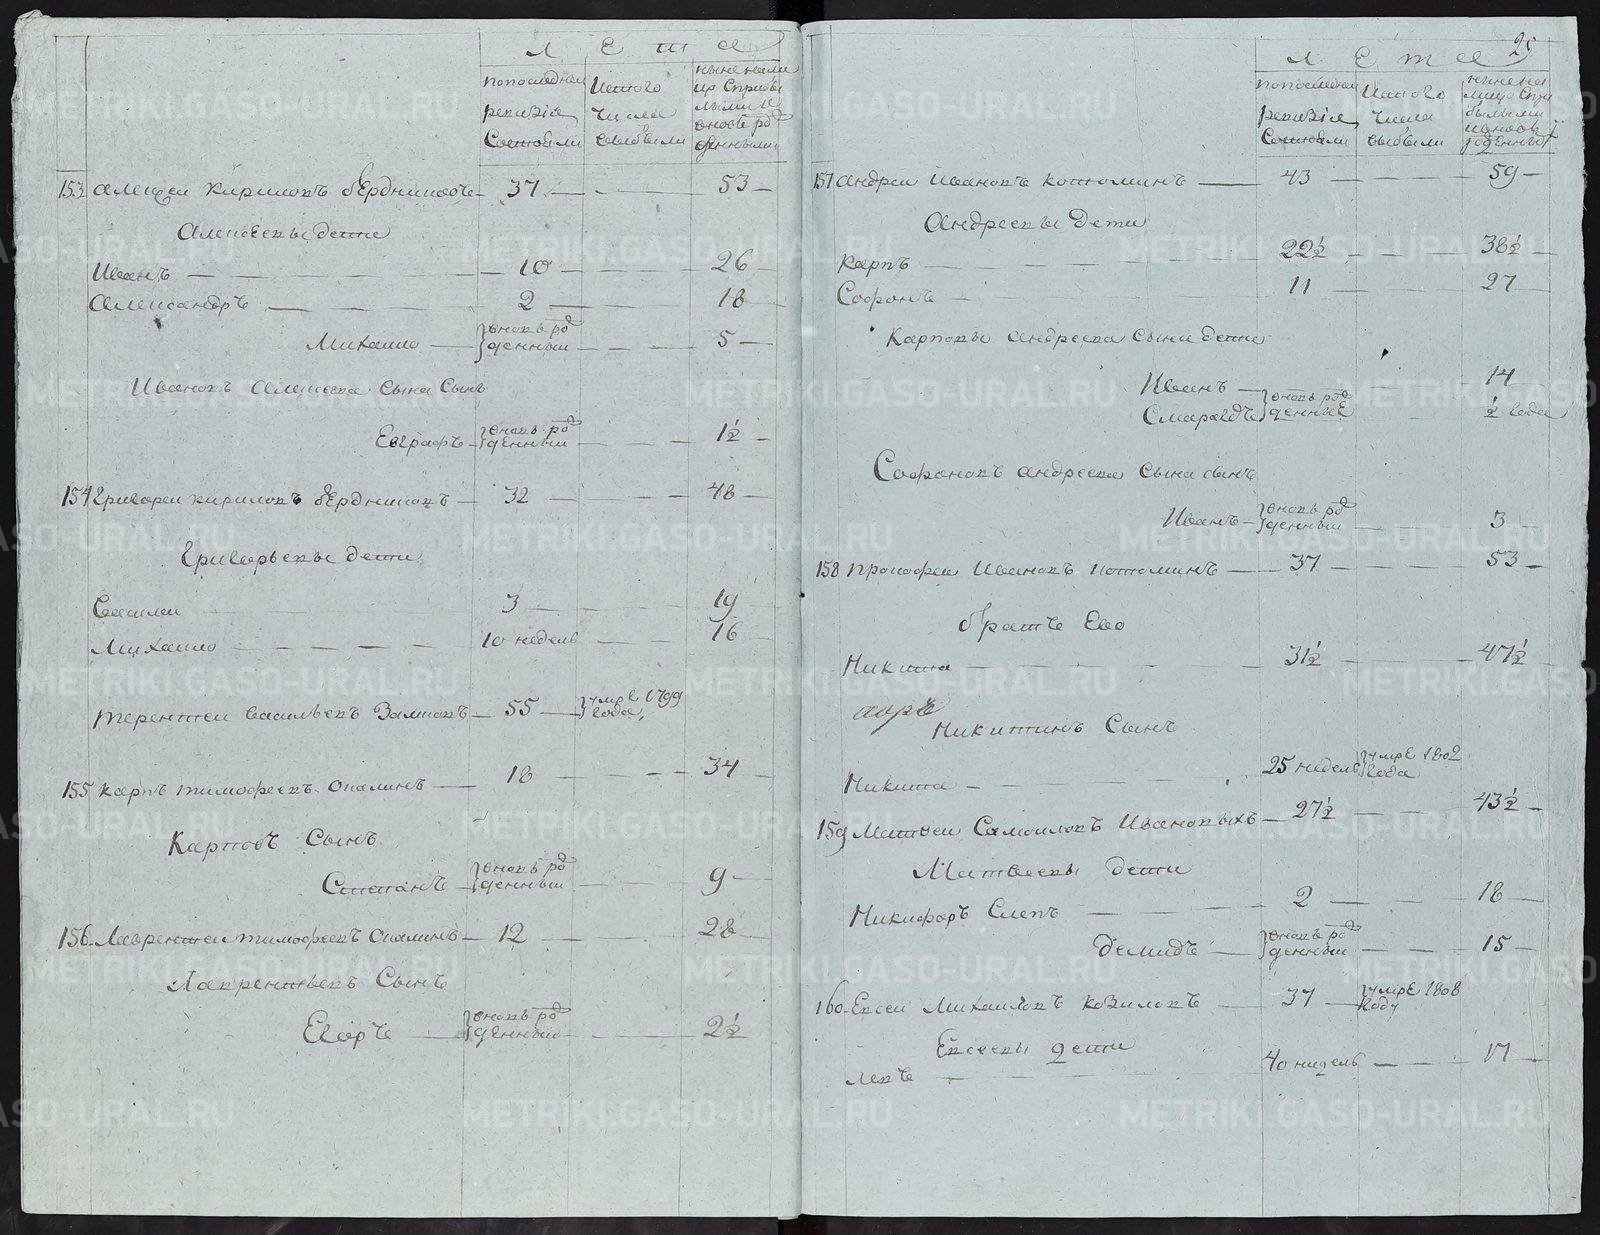 Лета
попоследнеи ревизiи состояли
истого числа выбыли
ныне налицо сприбылыми и вновь рожденными
153 Алексеи Кириловъ бердниковъ 37 53
Алексеевы дети
Иванъ 10 26
Александръ 2 18
Михаило вновь рожденныи 5
Ивановъ Алексеева сына сынъ
Евграфъ вновь рожденныи 1½
154 Григореи Кириловъ бердниковъ 32 48
Григорьевы дети
Василеи 3 19
Михаило 10 недель 16
Терентеи Васильевъ 55 умре 1799 года,
155 Карпъ Тимофеевъ Опалинъ 18 34
Карповъ Сынъ
Степанъ вновь рожденныи 9
156 Лаврентеи Тимофеевъ Опалинъ 12 28
Лаврентьевъ Сынъ
Егоръ вновь рожденныи 2½
25
Лета
попоследнеи ревизiи состояли
истого числа выбыли
ныне налицо сприбылыми ивновь рожденными
157 Андреи Ивановъ Котоминъ 43 59
Андреевы Дети
Карпъ 22½ 38½
Софонъ 11 27
Карповы Андреева Сына дети
Иванъ 14
Смарагдъ вновь рожденные ½ года
Софоновъ Андреева Сына сынъ
Иванъ вновь рожденныи 3
158 Прокофеи Ивановъ Котоминъ 37 53
братъ Ево
Никита 31½ 47½
Никитинъ Сынъ
Никита 25 недель умре 1802 года
159 Матвеи Самоиловъ Ивановыхъ 27½ 43½
Матвеевы дети
Никифоръ Слепъ 2 18
Демидъ вновь рожденныи 15
160 Евсеи Михаиловъ Козиловъ 37 умре 1808 году
Евсеевы дети
Левъ 40 нидель 17
METRIKI.GASO-URAL.RU